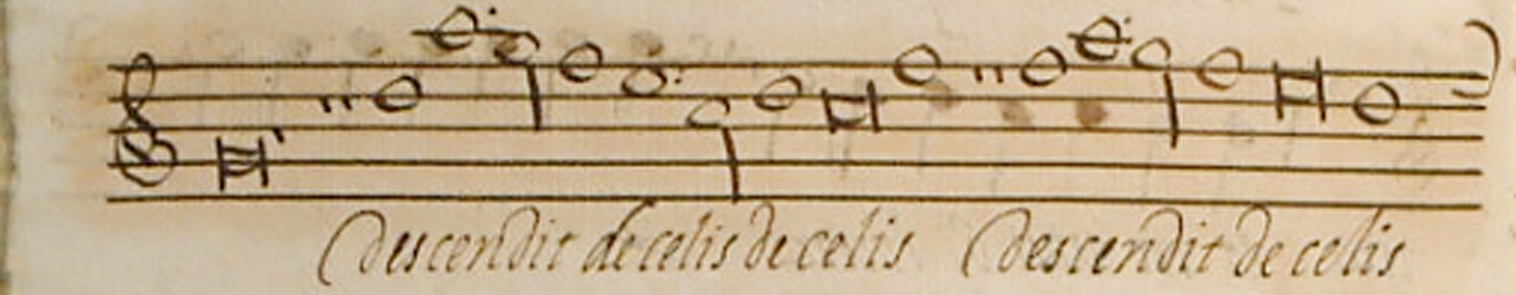 Descendit de celis de celis Descendit de celis